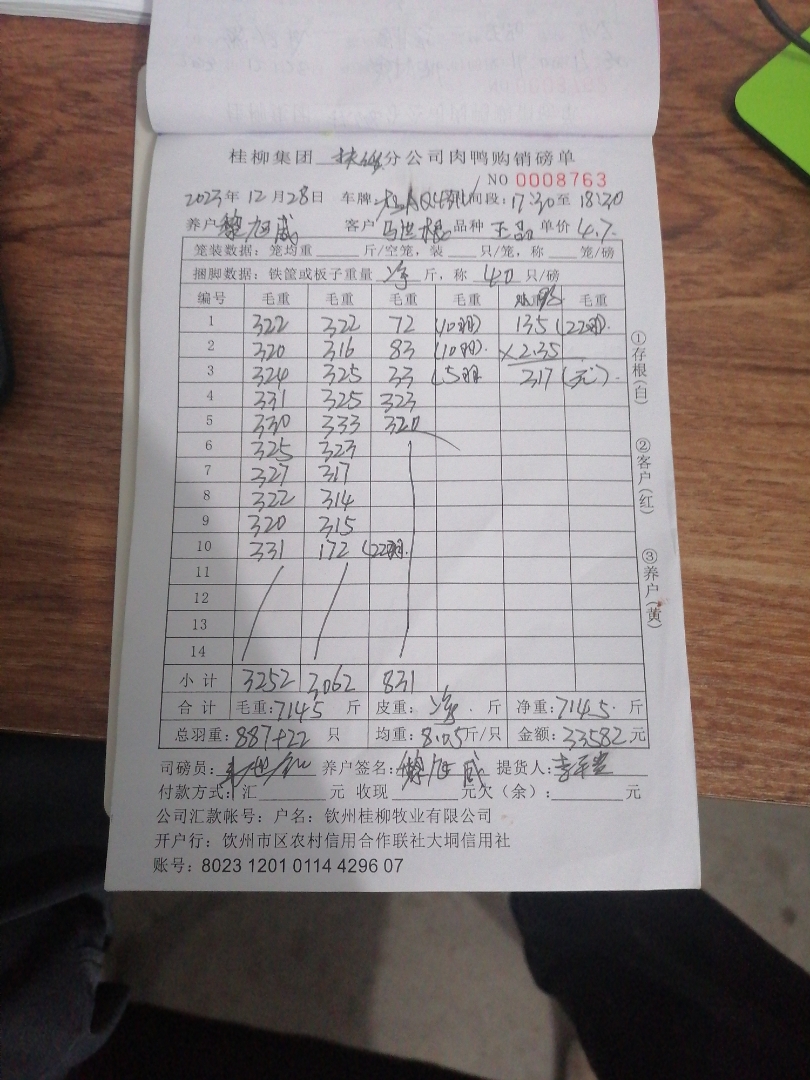 桂柳集团 分公司肉鸭购销磅单
NO 0008763
2023年12月28日 车牌 时间段: 17:30至18:30
养户 黎旭威 客户 马洪根 品种 王品 单价 4.7
笼装数据: 笼均重 斤/空笼, 装 只/笼, 称 笼/磅
捆脚数据: 铁筐或板子重量 净 斤, 称 40 只/磅
编号 毛重 毛重 毛重 毛重 毛重
1 322 322 72 (10羽) 135 (22羽)
2 320 316 83 (10羽) ×2.35
3 324 325 33 (5羽 317 (元)
4 331 325 323
5 330 333 320
6 325 323
7 327 317
8 322 314
9 320 315
10 331 172 (22羽)
11
12
13
14
小计 3252 3062 831
合计 毛重: 7145 斤 皮重: 净 斤 净重: 7145 斤
总羽重: 887+22 只 均重: 8.05斤/只 金额: 33582元
司磅员: 养户签名: 黎旭威 提货人:
付款方式: 汇 元 收现 元欠(余): 元
公司汇款帐号: 户名: 钦州桂柳牧业有限公司
开户行: 钦州市区农村信用合作联社大垌信用社
账号: 8023 1201 0114 4296 07
①存根(白)
②客户(红)
③养户(黄)